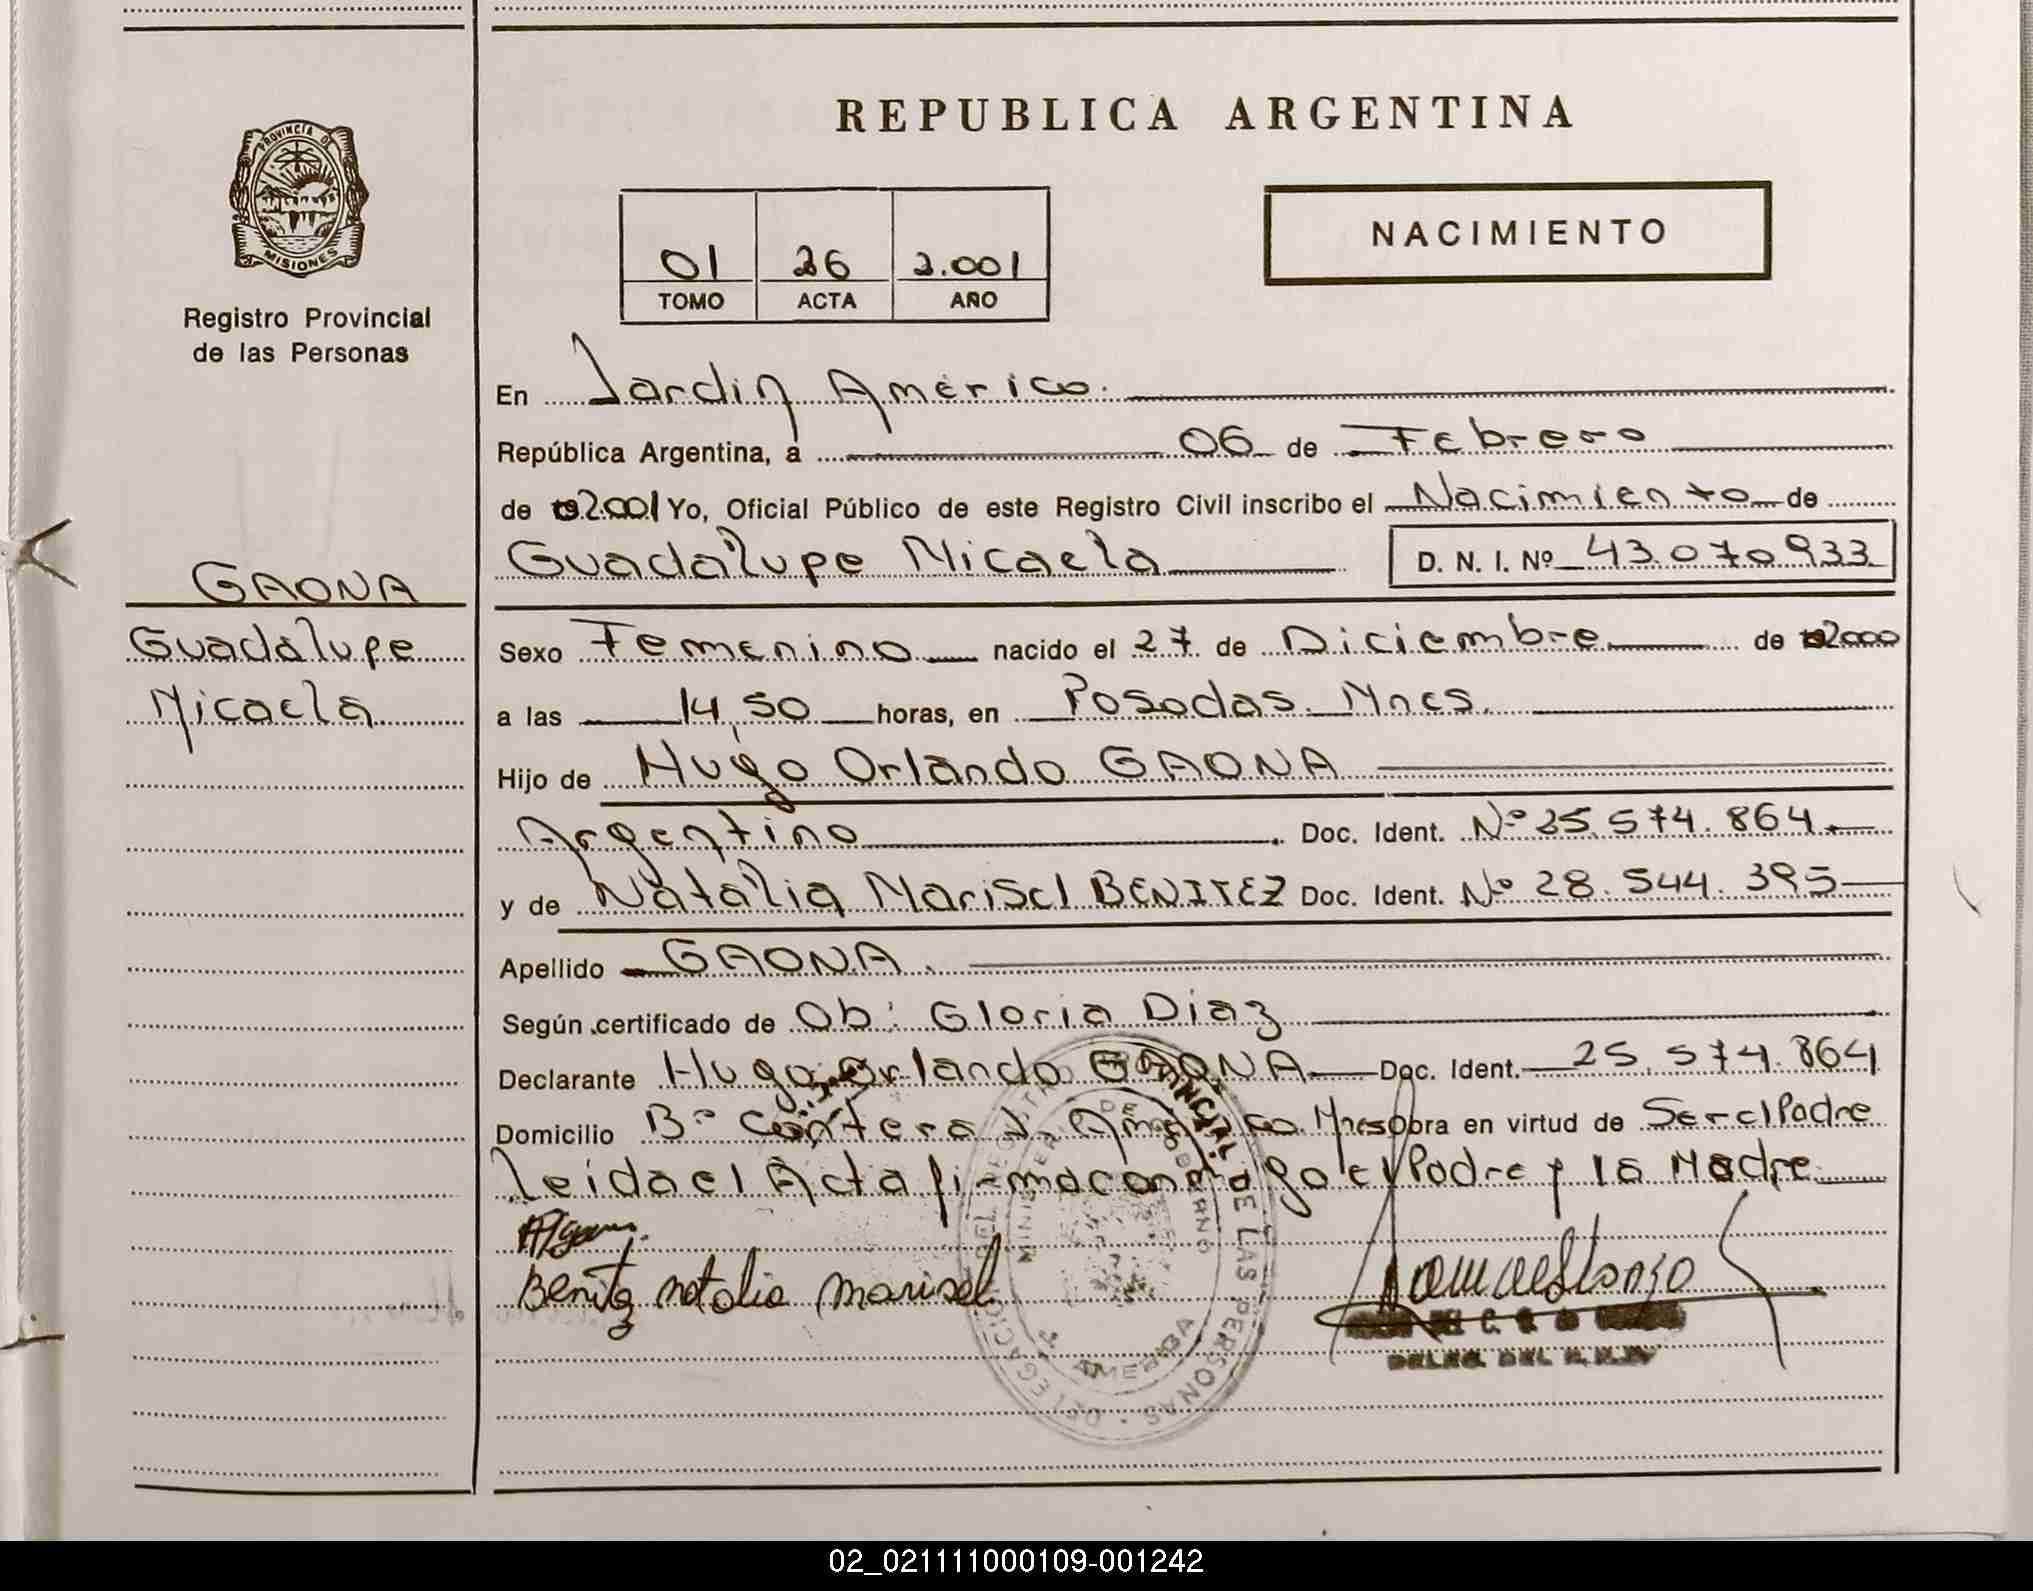 REPUBLICA ARGENTINA
PROVINCIA DE
MISIONES
Registro Provincial
de las Personas
NACIMIENTO
01 26 2.001
TOMO ACTA AÑO
En Jardin América.
República Argentina, a 06 de Febrero
de 2.001 Yo, Oficial Público de este Registro Civil inscribo el Nacimiento de
GAONA
Guadalupe Micaela
Guadalupe Micaela D. N. I. Nº 43.070.933
Sexo Femenino nacido el 27 de Diciembre de 2000
a las 14,50 horas, en Posadas. Mnes.
Hijo de Hugo Orlando GAONA
Argentino Doc. Ident. Nº 25.574.864.
y de Natalia Marisel BENITEZ Doc. Ident. Nº 28.544.395
Apellido GAONA.
Según certificado de Ob: Gloria Diaz
Declarante Hugo Orlando GAONA Doc. Ident. 25.574.864
Domicilio Bº Cantera J. América Mnes Obra en virtud de Ser el Padre
Leida el Acta firma conmigo el Padre y la Madre
Benitez natalia marisel
DELEGACION DEL REGISTRO PROVINCIAL DE LAS PERSONAS
MINISTERIO DE GOBIERNO
J. AMERICA
02_021111000109-001242